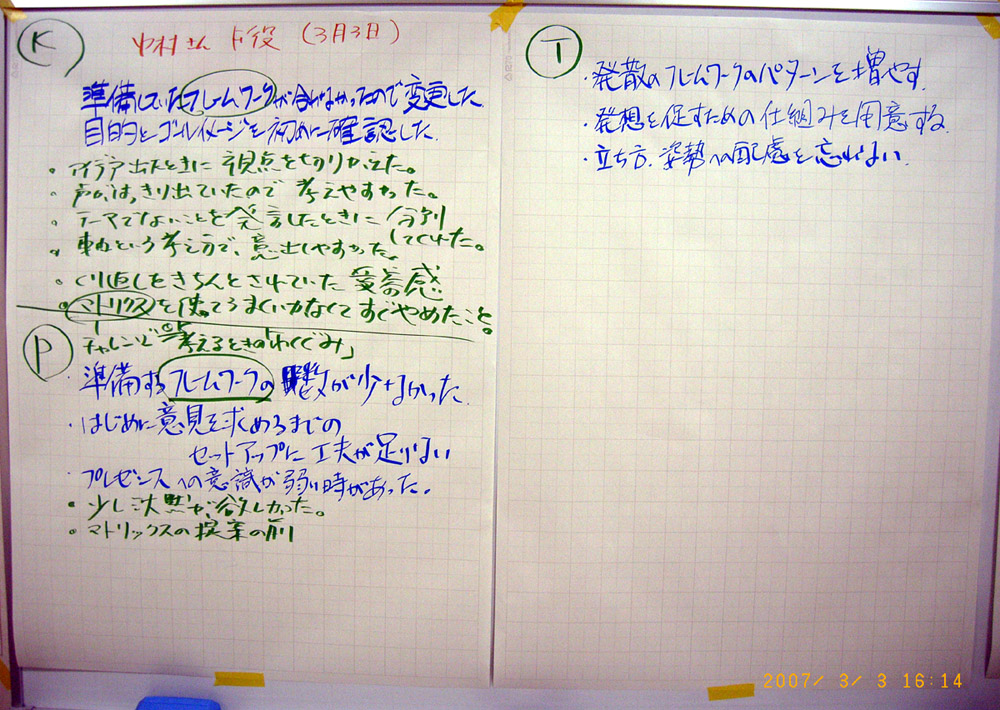 K
中村さん F役 (3月3日)
準備していたフレームワークが合わなかったので変更した
目的とゴールイメージを初めに確認した.
・アイデア出たときに視点を切りかえた。
・声がはっきり出ていたので 考えやすかった。
・テーマでないことを発言したときに 分別
してくれた。
・軸という考え方で、意出しやすかった。
・くり返しをきちんとされていた 受容感
・マトリクスを使ってうまくいかなくてすぐやめたこと。
チャレンジ 考えるときの「わくぐみ」
P
・準備するフレームワークの 数が少なかった
・はじめに意見を求めるまでの
セットアップに工夫が足りない
・プレゼンスへの意識が弱い時があった.
・少し沈黙が、欲しかった。
・マトリックスの提案の前
T
・発散のフレームワークのパターンを増やす.
・発想を促すための仕組みを用意する.
・立ち方.姿勢への配慮を忘れない.
2007/ 3/ 3 16:14